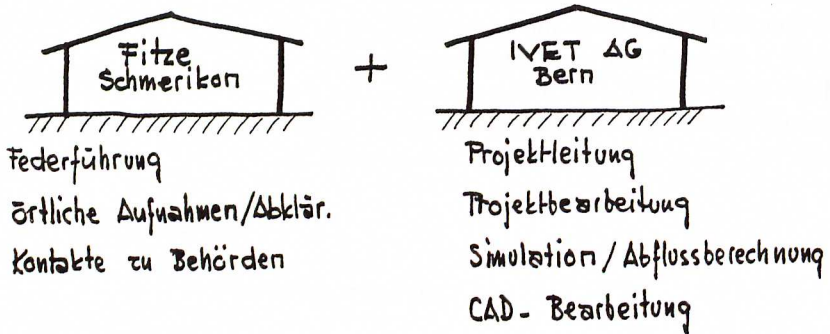 Fitze
Schmerikon
+
IVET AG
Bern
Federführung
örtliche Aufnahmen/Abklär.
Kontakte zu Behörden
Projektleitung
Projektbearbeitung
Simulation / Abflussberechnung
CAD - Bearbeitung